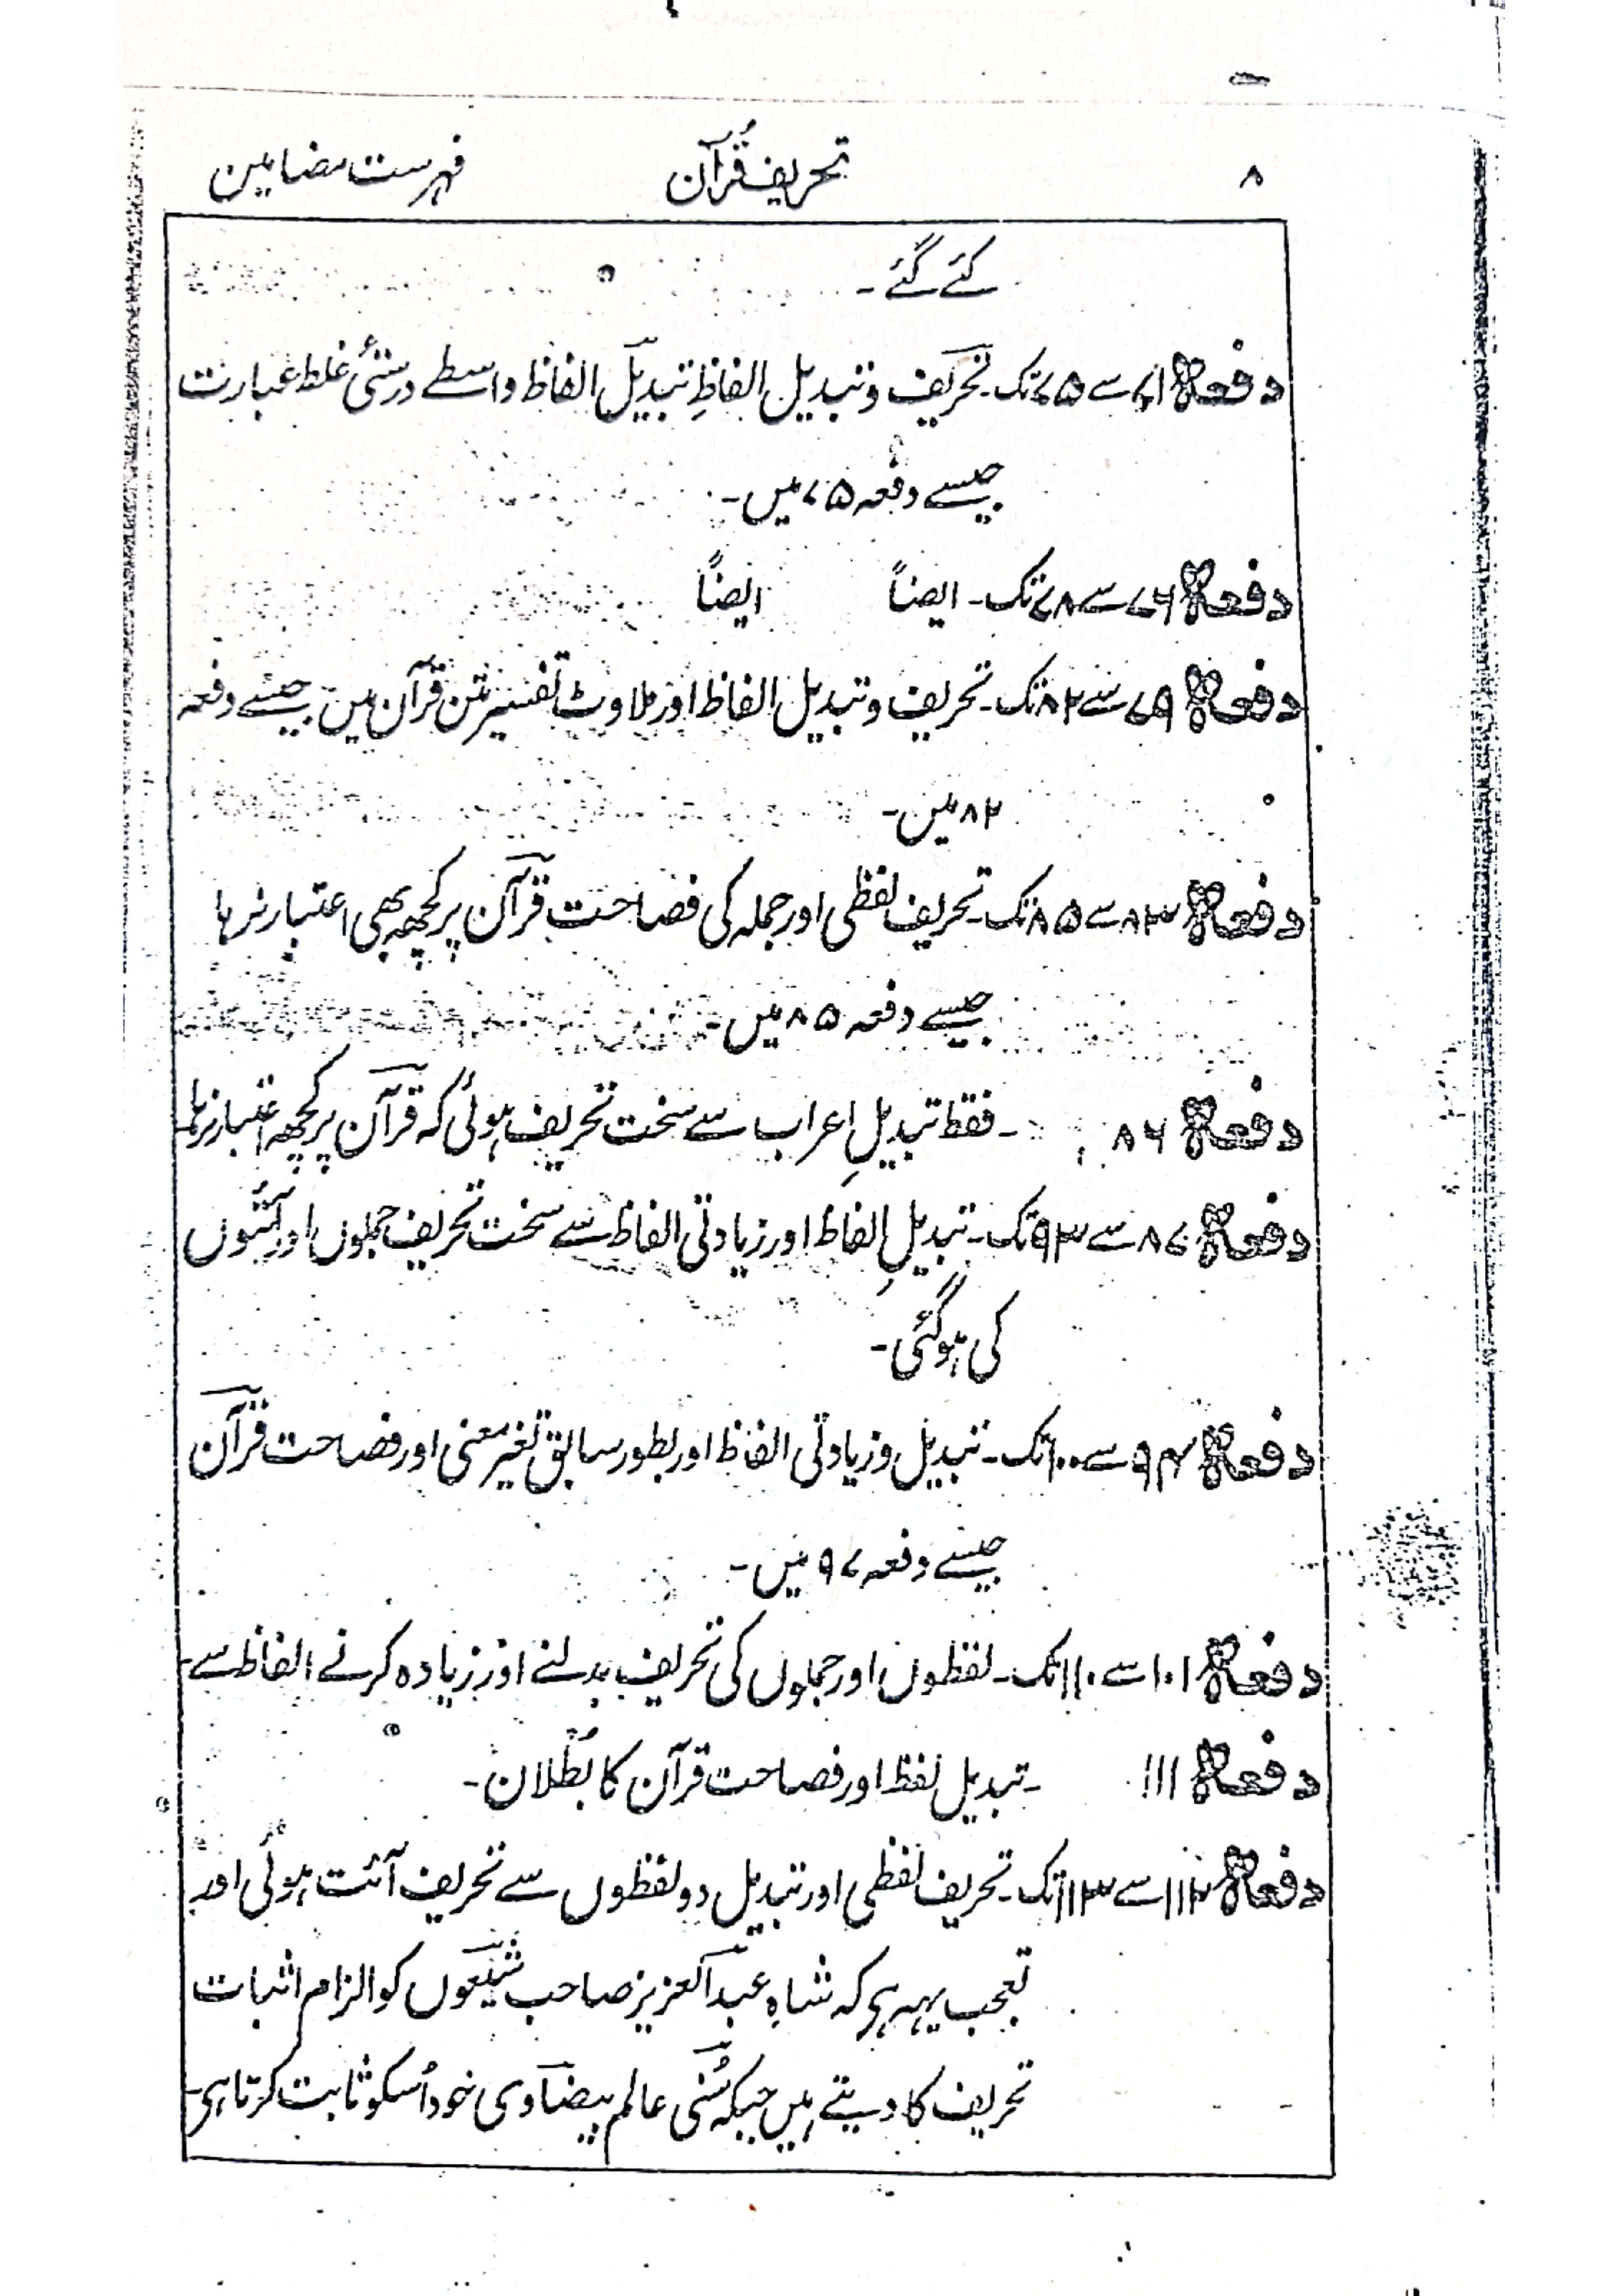 ۸ تحریف قُرآن فہرست مضامین
کئے گئے۔
دفعہ ۷۱ سے ۷۵ تک۔ تحریف و تبدیل الفاظِ تبدیل الفاظ واسطے درستیٔ غلط عبارت
جیسے دفعہ ۷۵ میں۔
دفعہ ۷۶ سے ۷۸ تک۔ ایضاً ایضاً
دفعہ ۷۹ سے ۸۲ تک۔ تحریف و تبدیل الفاظ اور ملاوٹ تفسیر متن قرآن میں جیسے دفعہ
۸۲ میں۔
دفعہ ۸۳ سے ۸۵ تک۔ تحریف لفظی اور جملہ کی فصاحت قرآن پر کچھ بھی اعتبار نرہا
جیسے دفعہ ۸۵ میں۔
دفعہ ۸۶ ۔ فقط تبدیلِ اعراب سے سخت تحریف ہوئی کہ قرآن پر کچھ اعتبار نرہا۔
دفعہ ۸۷ سے ۹۳ تک۔ تبدیلِ الفاظ اور زیادتی الفاظ سے سخت تحریف جملوں اور آئتوں
کی ہوگئی۔
دفعہ ۹۴ سے ۱۰۰ تک۔ تبدیل و زیادتی الفاظ اور بطور سابق تغیر معنی اور فصاحت قرآن
جیسے دفعہ ۹۷ میں۔
دفعہ ۱۰۱ سے ۱۱۰ تک۔ لفظوں اور جملوں کی تحریف بدلنے اور زیادہ کرنے الفاظ سے۔
دفعہ ۱۱۱ ۔ تبدیل لفظ اور فصاحت قرآن کا بُطلان۔
دفعہ ۱۱۲ سے ۱۱۳ تک۔ تحریف لفظی اور تبدیل دو لفظوں سے تحریف آئت ہوئی اور
تعجب یہہ ہی کہ شاہ عبد العزیز صاحب شیعوں کو الزام اثبات
تحریف کا دیتے ہیں جبکہ سُنی عالم بیضاوی خود اُسکو ثابت کرتا ہی۔